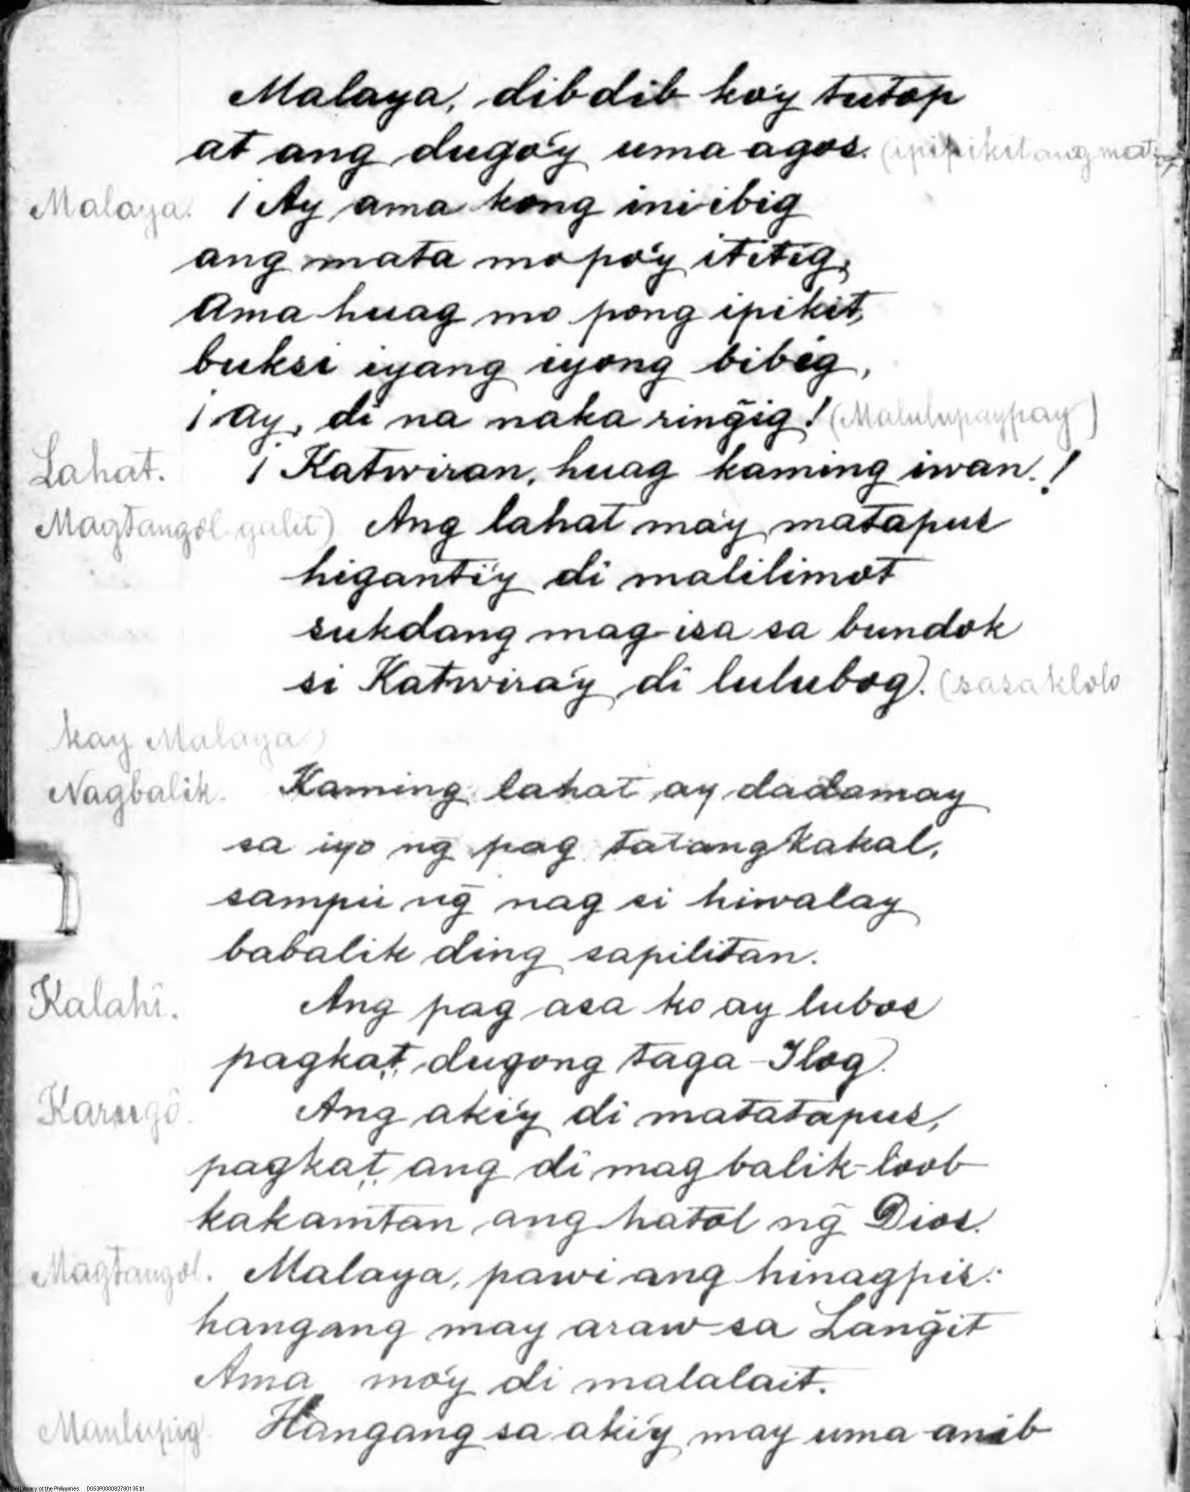 Malaya, dibdib ko'y tutop
at ang dugo'y uma-agos. (ipipikit ang mata
Malaya. ¡Ay ama kong iniibig
ang mata mo po'y ititig,
Ama huag mo pong ipikit,
buksi iyang iyong bibig,
¡ay, di na naka ring̃ig! (Malulupaypay)
Lahat. ¡Katwiran, huag kaming iwan.!
Magtangol galit) Ang lahat ma'y matapus
higanti'y di malilimot
sukdang mag-isa sa bundok
si Katwira'y di lulubog). (sasaklolo
kay Malaya)
Nagbalik. Kaming lahat ay dadamay
sa iyo ng̃ pag tatangkakal,
sampu ng̃ nag si hiwalay
babalik ding sapilitan.
Kalahi. Ang pag asa ko ay lubos
pagkat, dugong taga-Ilog).
Karugô. Ang aki'y di matatapus,
pagkat, ang di mag balik-loob
kakamtan ang hatol ng̃ Dios.
Magtangol. Malaya, pawi ang hinagpis:
hangang may araw sa Lang̃it
Ama mo'y di malalait.
Manlupig Hangang sa aki'y may uma-anib
National Library of the Philippines